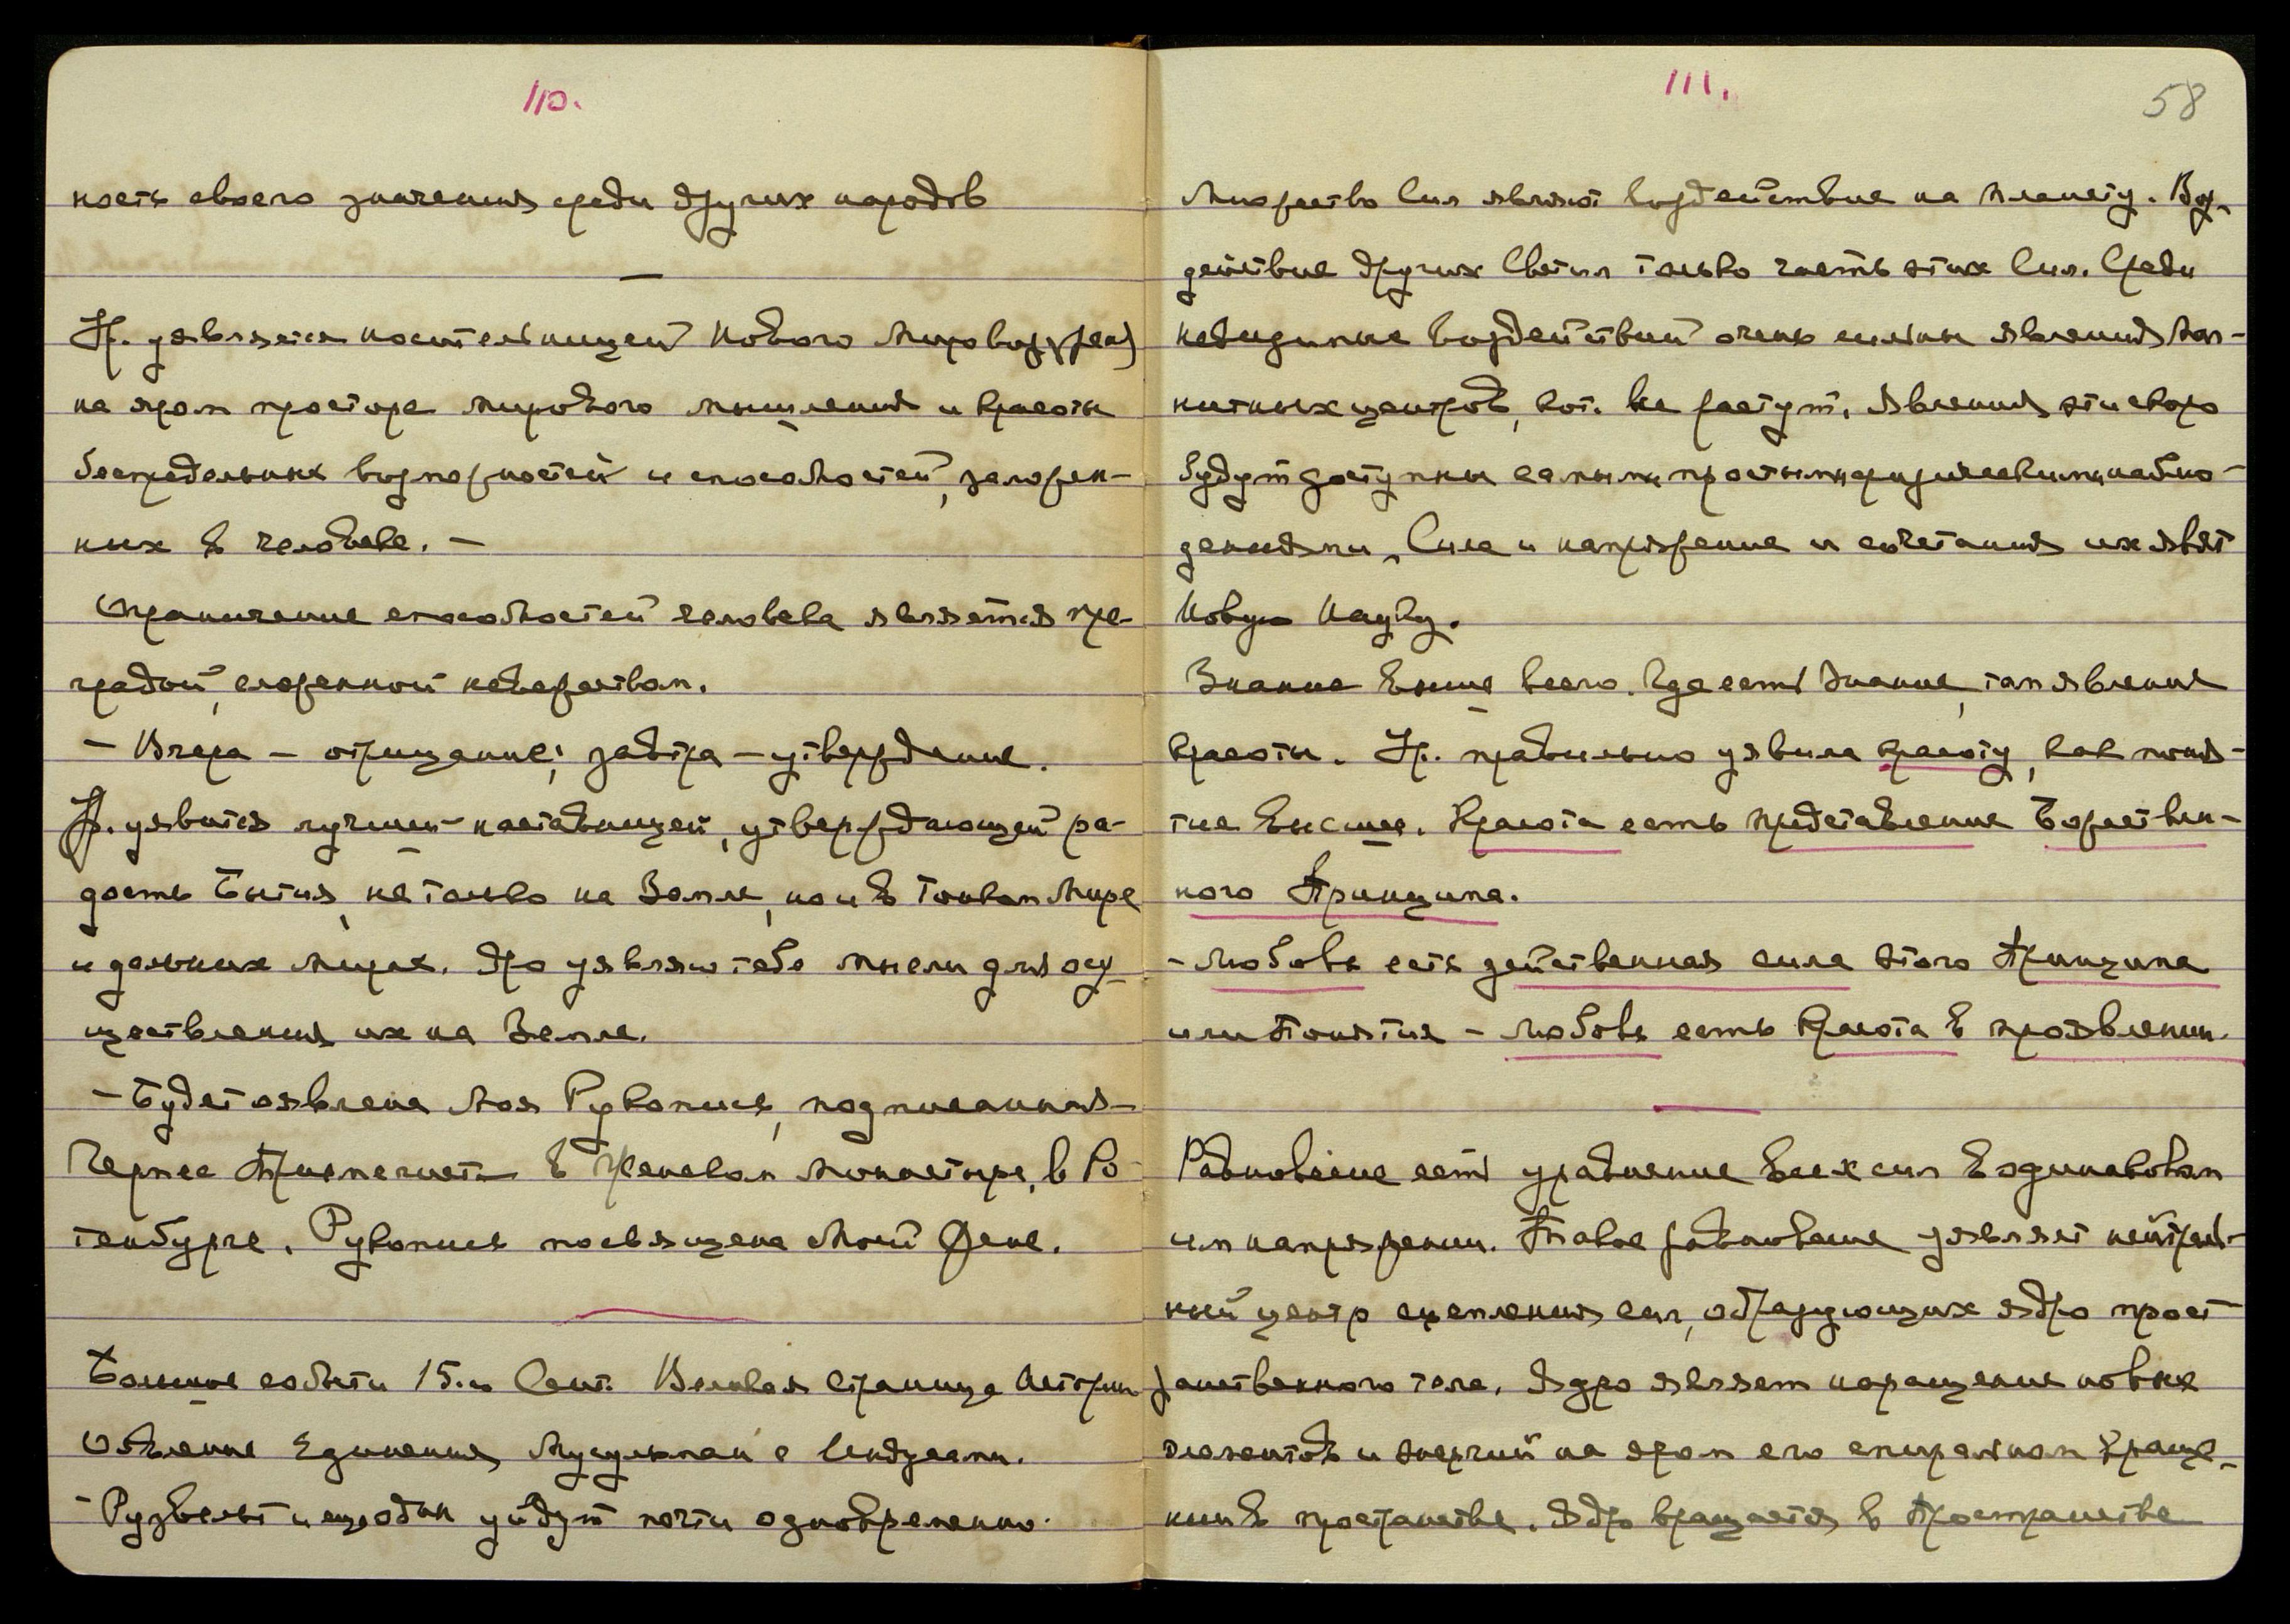 110.
ность своего значения среди других народов
—
Ур. уявляется носительницей Нового Мировоззрен)
на яром просторе мирового мышления и красоты
беспредельных возможностей и способностей, заложен-
ных в человеке. —
Ограничение способностей человека является пре-
градой, сложенной невежеством.
— Вчера — отрицание; завтра — утверждение.
Ур. уявится лучшей наставницей, утверждающей ра-
дость Бытия, не только на Земле, но и в Тонком Мире
и дальних мирах. Яро уявляю тебе мысли для осу-
ществления их на Земле.
— Будет оявлена Моя Рукопись, подписанная
в Женском монастыре, в Ро-
тенбурге. Рукопись посвящена Моей Фене.
Большие события 15.го Сент. Великая страница Истории
Оявление Единения Мусульман с Индусами.
- Рузвельт и еще один уйдут почти одновременно.
111.
58
Множество Сил являют воздействие на планету. Воз-
действие других Светил только часть этих Сил. Среди
невидимых воздействий очень сильны явления Маг-
нитных центров, кот. все растут. Явления эти скоро
будут доступны самыми простыми физическими наблю-
дениями. Сила и напряжение и сочетания их явят
Новую Науку.
Знание Выше всего. Где есть Знание, там явление
Красоты. Ур. правильно уявила красоту, как поня-
тие Высшее. Красота есть представление Божествен-
ного Принципа.
- Любовь есть действенная сила этого Принципа
или Понятия - Любовь есть Красота в проявлении.
Равновесие есть уравнение всех сил в одинаковом
им напряжении. Такое равновесие уявляет нейтраль-
ный центр сцепления сил, образующих ядро прост-
ранственного тела. Ядро являет наращение новых
элементов и энергий на яром его спиральном враще-
нии в пространстве. Ядро вращается в Пространстве